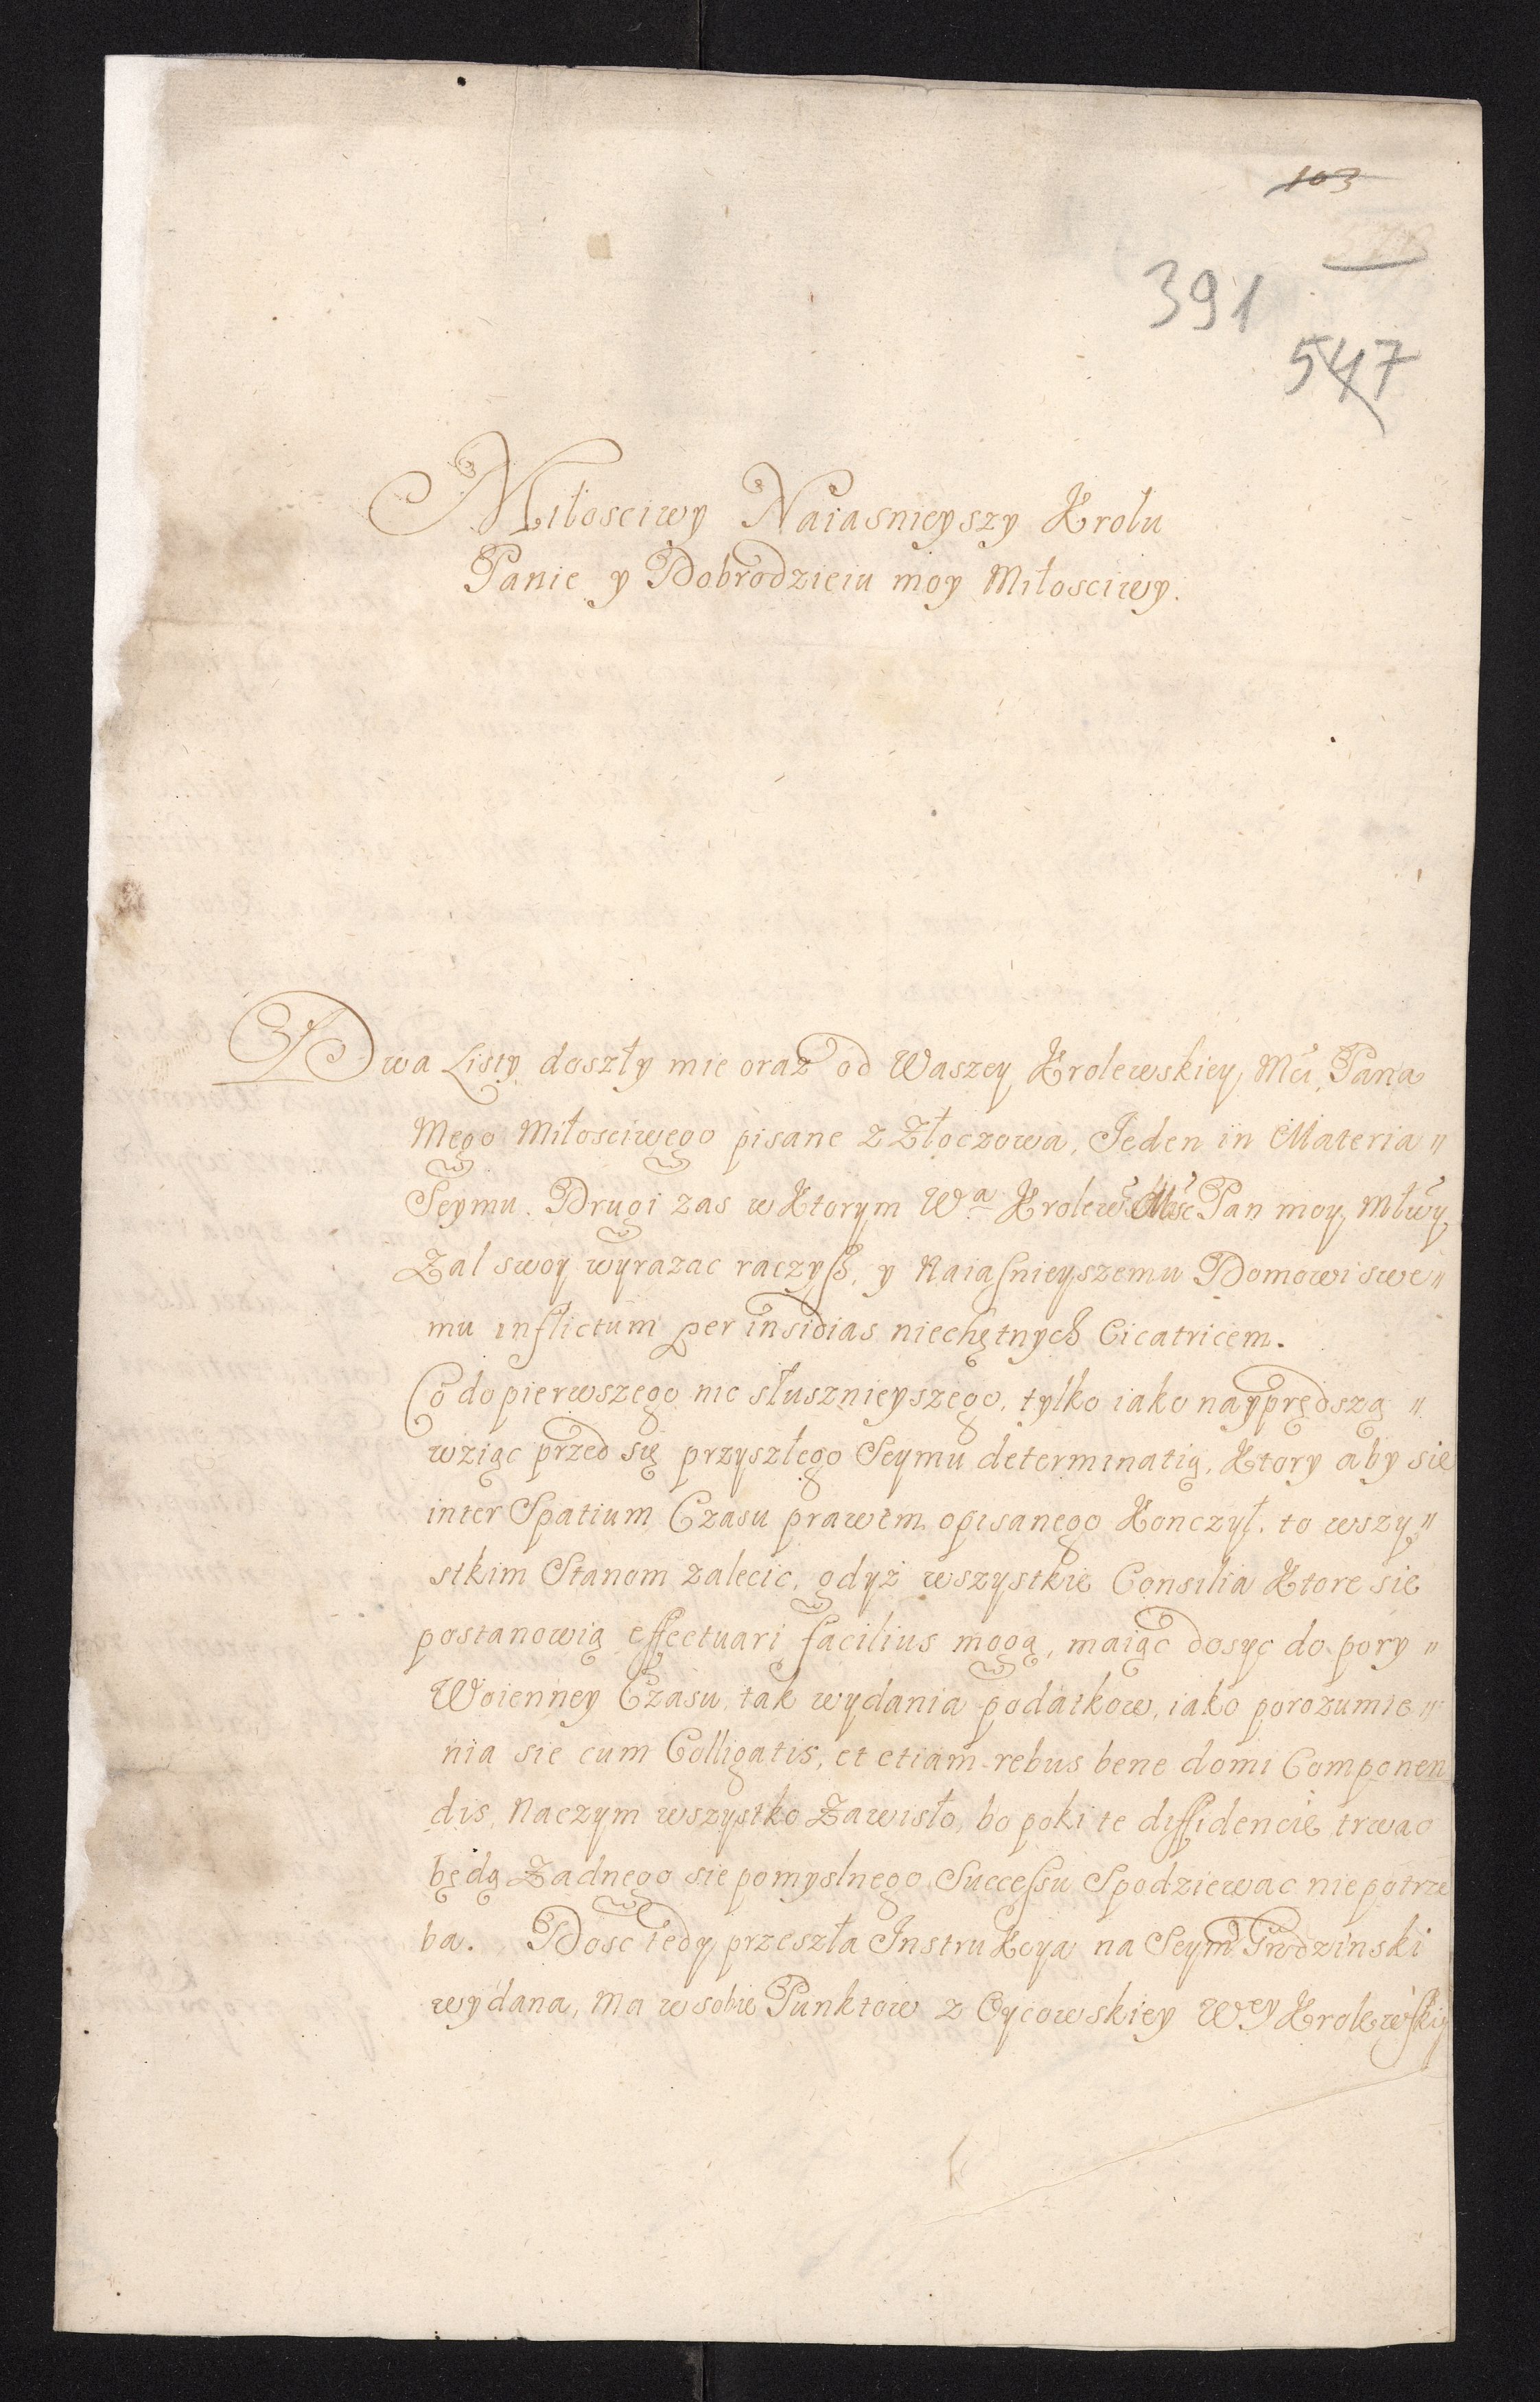 103
391
547
Miłosciwy Naiasnieyszy Krolu
Panie y Dobrodzieiu moy Miłosciwy.
Dwa Listy doszły mie oraz od Waszey Krolewskiey Mci Pana
Mego Miłosciwego pisane z Złoczowa, Jeden in Materia„
Seymu. Drugi zas w Ktorym Wa Krolew Msc Pan moy Młwy
Zal swoy wyrazac raczysz, y Naiasnieyszemu Domowi swe„
mu inflictum per insidias niechętnych Cicatricem.
Co do pierwszego nic słusznieyszego, tylko iako nayprędszą„
wziąc przed się przyszłego Seymu determinatią, Ktory aby sie
inter Spatium Czasu prawem opisanego Konczył, to wszy„
stkim Stanom zalecic, gdyż wszystkie Consilia Ktore sie
postanowią effectuari facilius mogą, maiąc dosyc do pory„
Woienney Czasu, tak wydania podatkow, iako porozumie„
nia sie cum Colligatis, et etiam rebus bene domi Componen
dis, Naczym wszystko Zawisło, bo poki te diffidencie trwac
będą Zadnego sie pomyslnego Successu Spodziewac nie potrze
ba. Dosc tedy przeszła InstruKcya na Seym Grodzinski
wydana, Ma w sobie Punktow z Oycowskiey Wey Krolewskiy